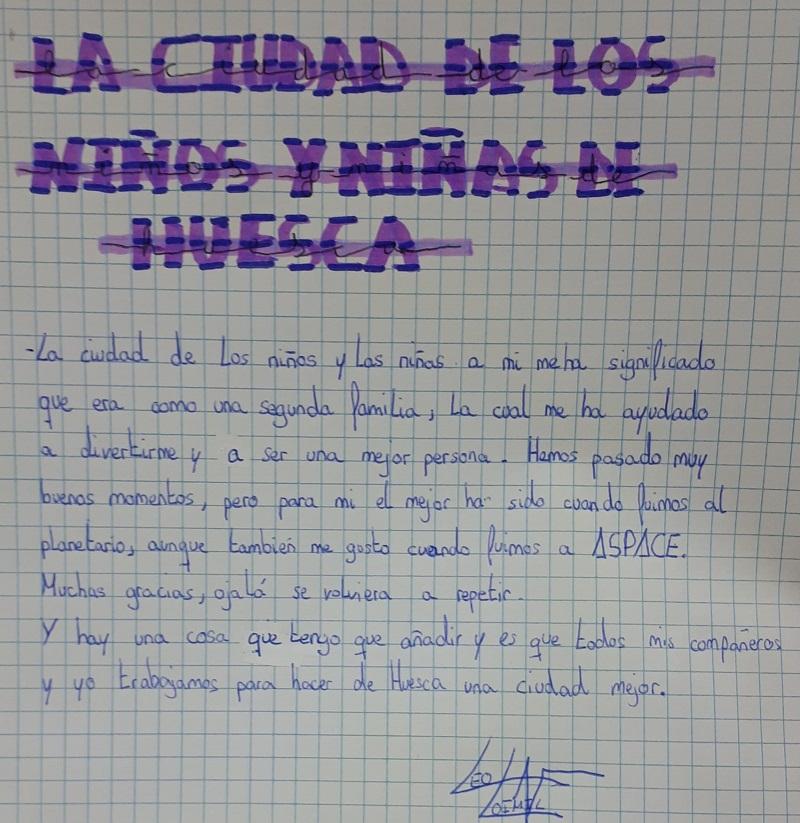 LA CIUDAD DE LOS
NIÑOS Y NIÑAS DE
HUESCA
-La ciudad de Los niños y Las niñas a mi me ha significado
que era como una segunda familia, La cual me ha ayudado
a divertirme y a ser una mejor persona. Hemos pasado muy
buenos momentos, pero para mi el mejor ha sido cuando fuimos al
planetario, aunque también me gusto cuando fuimos a ASPACE.
Muchas gracias, ojalá se volviera a repetir.
Y hay una cosa que tengo que añadir y es que todos mis compañeros
y yo trabajamos para hacer de Huesca una ciudad mejor.